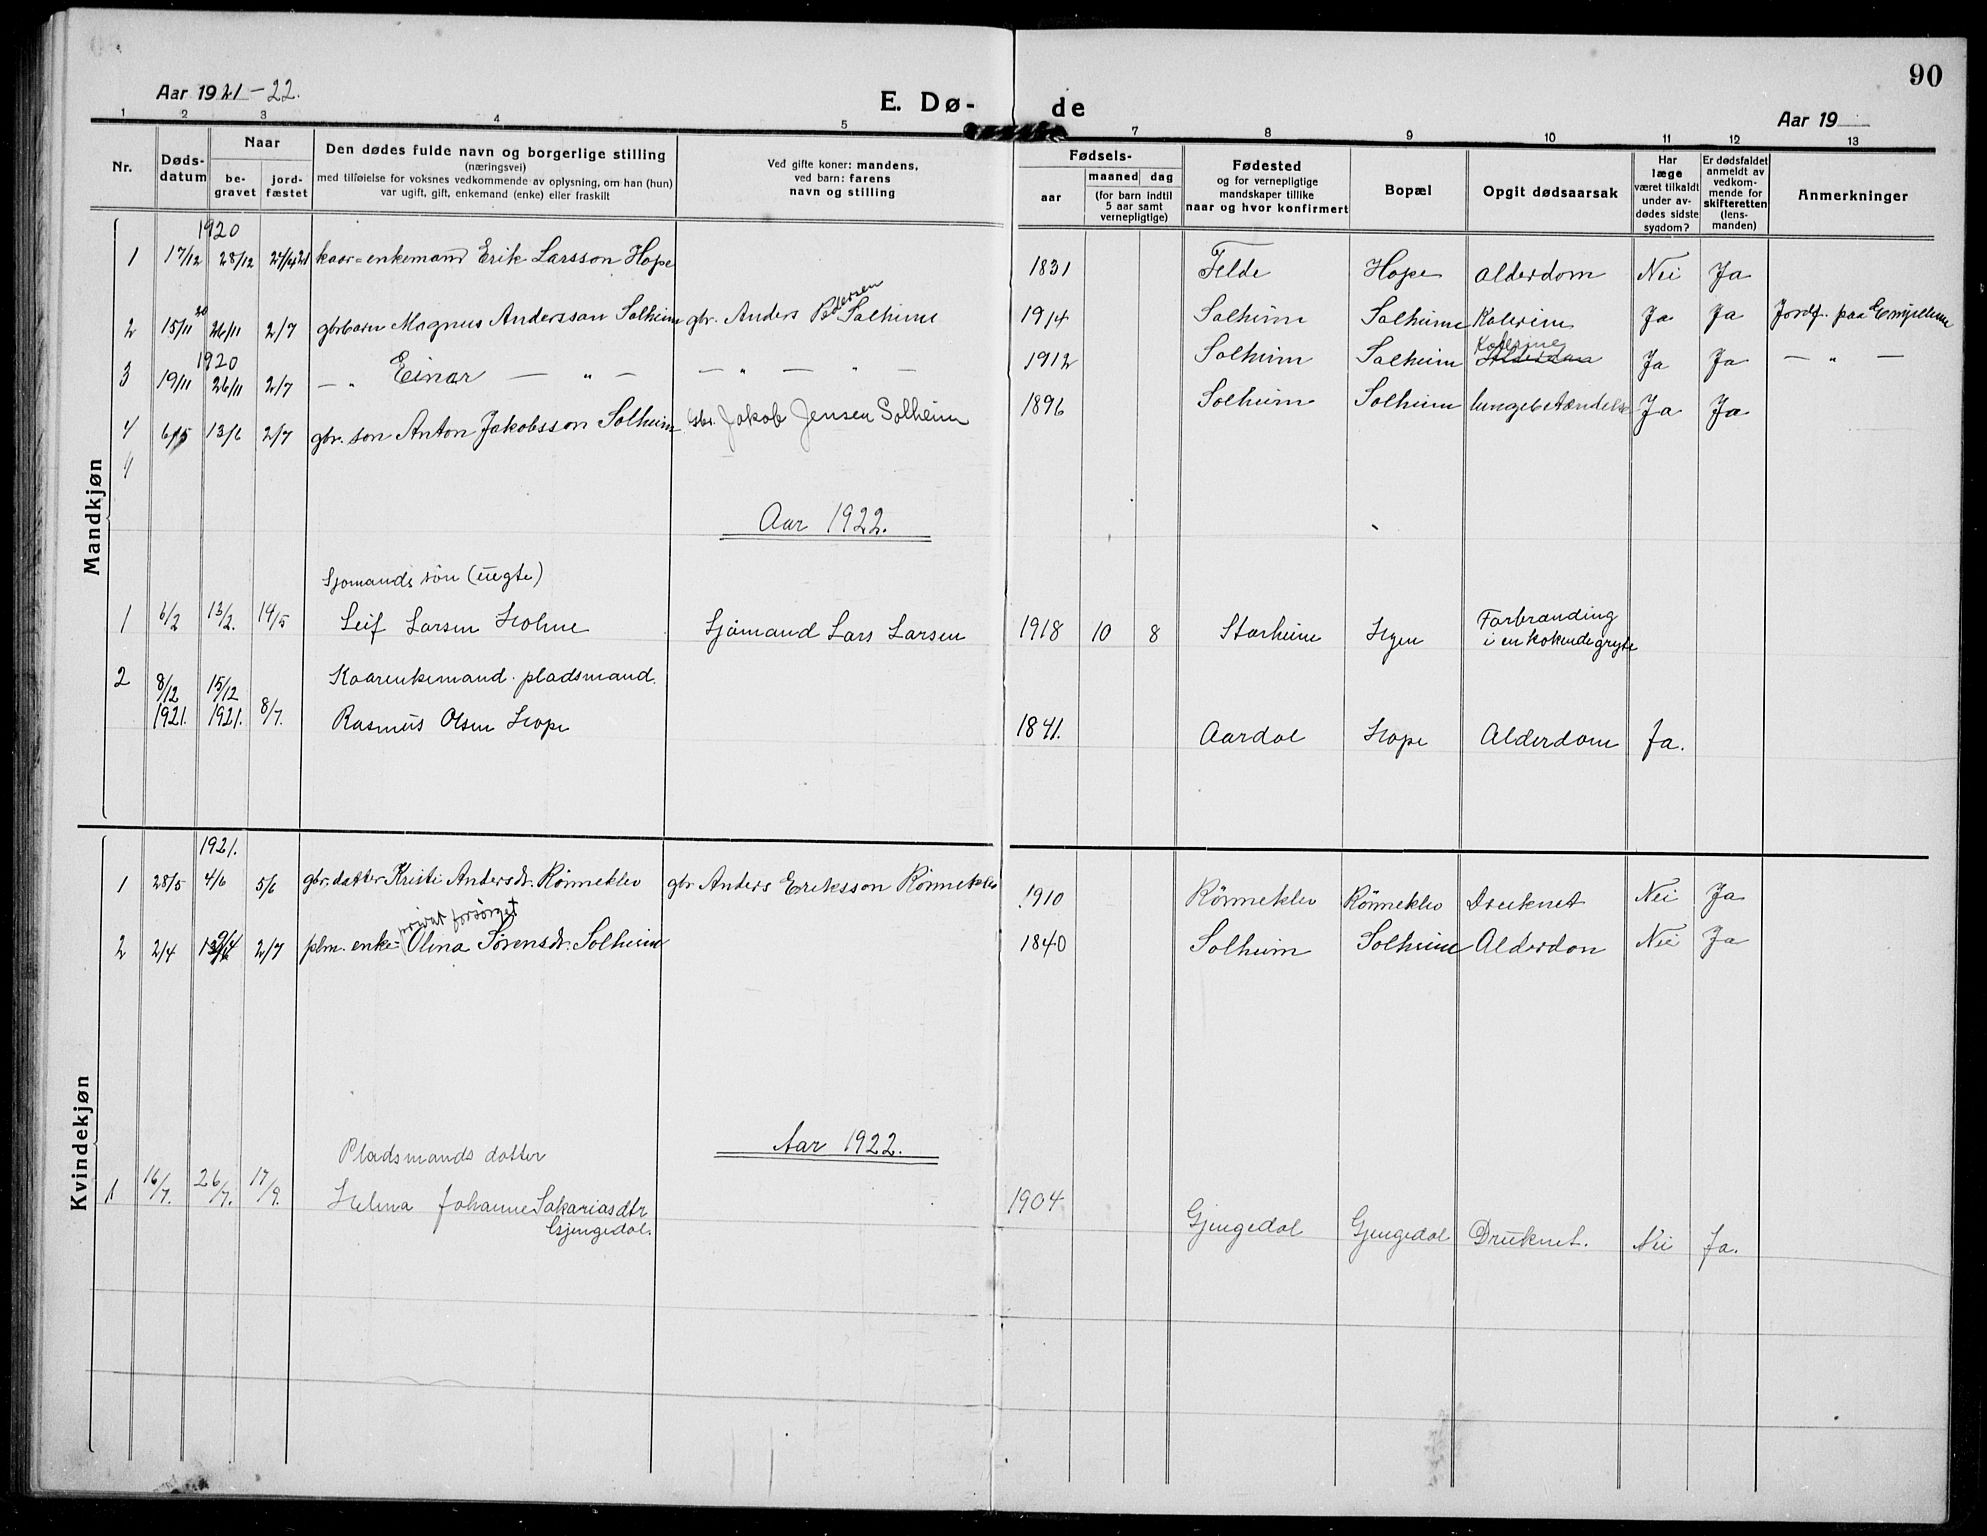 90
Aar 1921-22.
E. Dø-
de
Aar 19
1 2 3 4 5 7 8 9 10 11 12 13
Nr.
Døds-
datum
Naar
be-
gravet
jord-
fæstet
Den dødes fulde navn og borgerlige stilling
(næringsvei)
med tilføielse for voksnes vedkommende av oplysning, om han (hun)
var ugift, gift, enkemand (enke) eller fraskilt
Ved gifte koner: mandens,
ved barn: farens
navn og stilling
Fødsels-
aar
maaned dag
(for barn indtil
5 aar samt
vernepligtige)
Fødested
og for vernepligtige
mandskaper tillike
naar og hvor konfirmert
Bopæl
Opgit dødsaarsak
Har
læge
været tilkaldt
under av-
dødes sidste
sygdom?
Er dødsfaldet
anmeldt av
vedkom-
mende for
skifteretten
(lens-
manden)
Anmerkninger
Mandkjøn
1920
1 17/12 28/12 24/4 21 kaar-enkemand Erik Larsson Hope 1831 Felde Hope Alderdom Nei Ja
2 15/11 20 26/11 2/7 gbrbarn Magnus Andersson Solheim gbr. Anders Pedersen Solheim 1914 Solheim Solheim Kolerine Ja Ja Jordf. paa
1920
3 19/11 26/11 2/7 — " Einar — " — — " — " — 1912 Solheim Solheim Kolerine Ja Ja — " —
4 6/5 13/6 2/7 gbr. søn Anton Jakobsson Solheim gbr. Jakob Jensen Solheim 1896 Solheim Solheim lungebetændelse Ja Ja
4
Aar 1922.
Sjømands søn (uegte)
1 6/2 13/2. 14/5 Leif Larsen Holme Sjømand Lars Larsen 1918 10 8 Starheim Hyen Forbrænding
i en kokende gryte
2 8/12 15/12 Kaarenkemand. pladsmand.
1921. 1921. 8/7. Rasmus Olsen Hope 1841. Aardal Hope Alderdom Ja.
Kvindekjøn
1921.
1 28/5 4/6 5/6 gbr. datter Kristi Andersdr. Rönneklev gbr Anders Eriksson Rönneklev 1910 Rönneklev Rönneklev Druknet Nei Ja
privat forsørget
2 2/4 2/7 plm. enke Olina Sørensdr. Solheim 1840 Solheim Solheim Alderdom Nei Ja
Aar 1922.
Pladsmands datter
1 16/7. 26/7. 17/9. Helena Johanne Sakariasdtr 1904
Gjengedal. Gjengedal Gjengedal Druknet. Nei Ja.